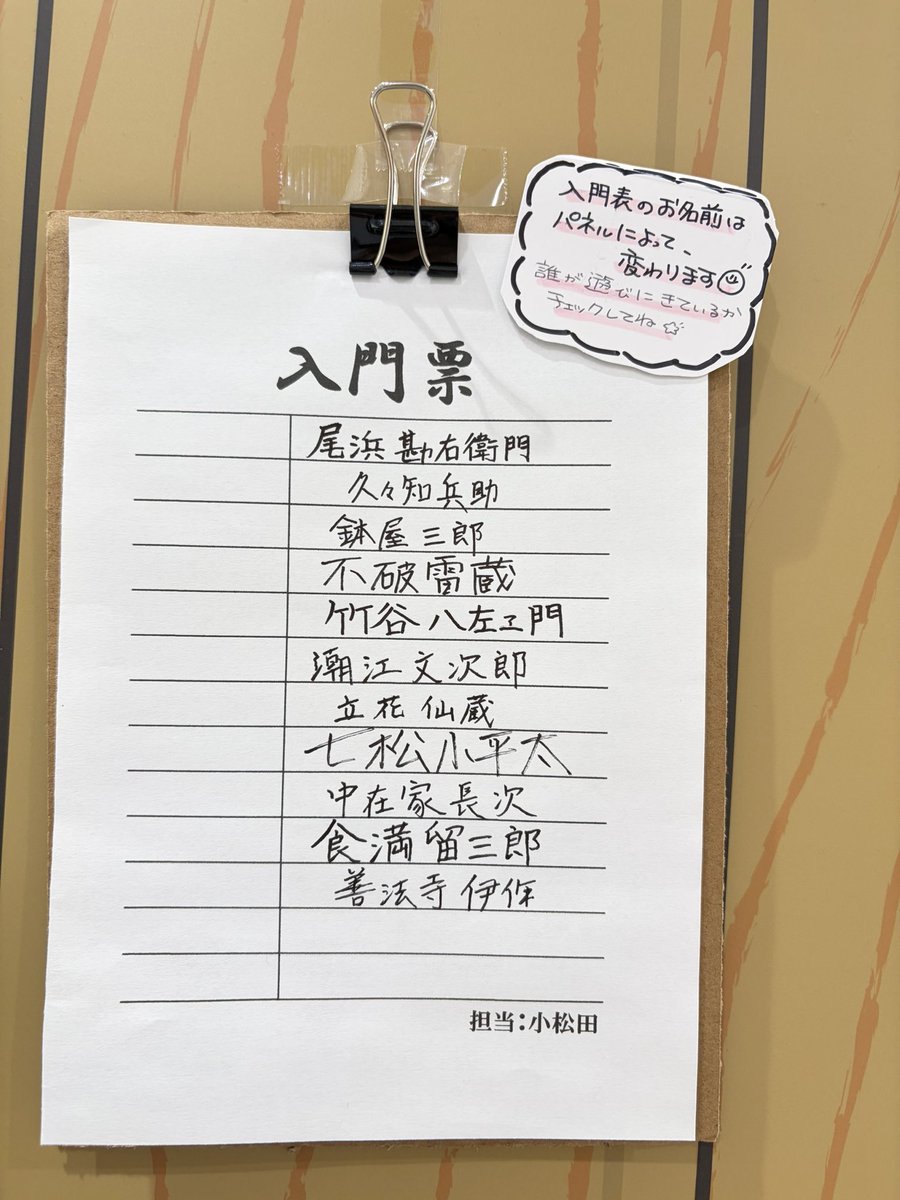 入門表のお名前は
パネルによって、
変わります
誰が遊びにきているか
チェックしてね☆
入門票
尾浜 勘右衛門
久々知兵助
鉢屋 三郎
不破雷蔵
竹谷 八左ヱ門
潮江文次郎
立花 仙蔵
七松小平太
中在家長次
食満留三郎
善法寺 伊作
担当:小松田